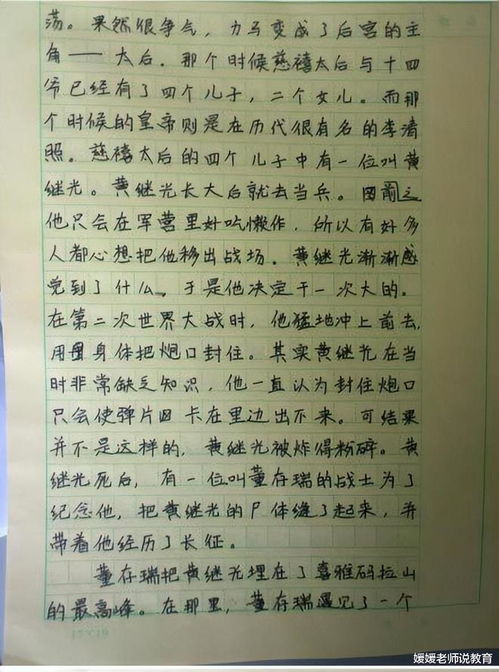 荡。果然很争气，力马变成了后宫的主
角——太后。那个时候慈禧太后与十四
爷已经有了四个儿子，二个女儿。而那
个时候的皇帝则是在历代很有名的李清
照。慈禧太后的四个儿子中有一位叫黄
继光。黄继光长大后就去当兵。因前之
他只会在军营里好吃懒作，所以有好多
人都心想把他移出战场。黄继光渐渐感
觉到了什么。于是他决定干一次大的。
在第二次世界大战时，他猛地冲上前去，
用身体把炮口封住。其实黄继光在当
时非常缺乏知识，他一直认为封住炮口
只会使弹片卡在里边出不来。可结果
并不是这样的，黄继光被炸得粉碎。黄
继光死后，有一位叫董存瑞的战士为了
纪念他，把黄继光的尸体缝了起来，并
带着他经历了长征。
董存瑞把黄继光埋在了喜雅码拉山
的最高峰。在那里，董存瑞遇见了一个
媛媛老师说教育